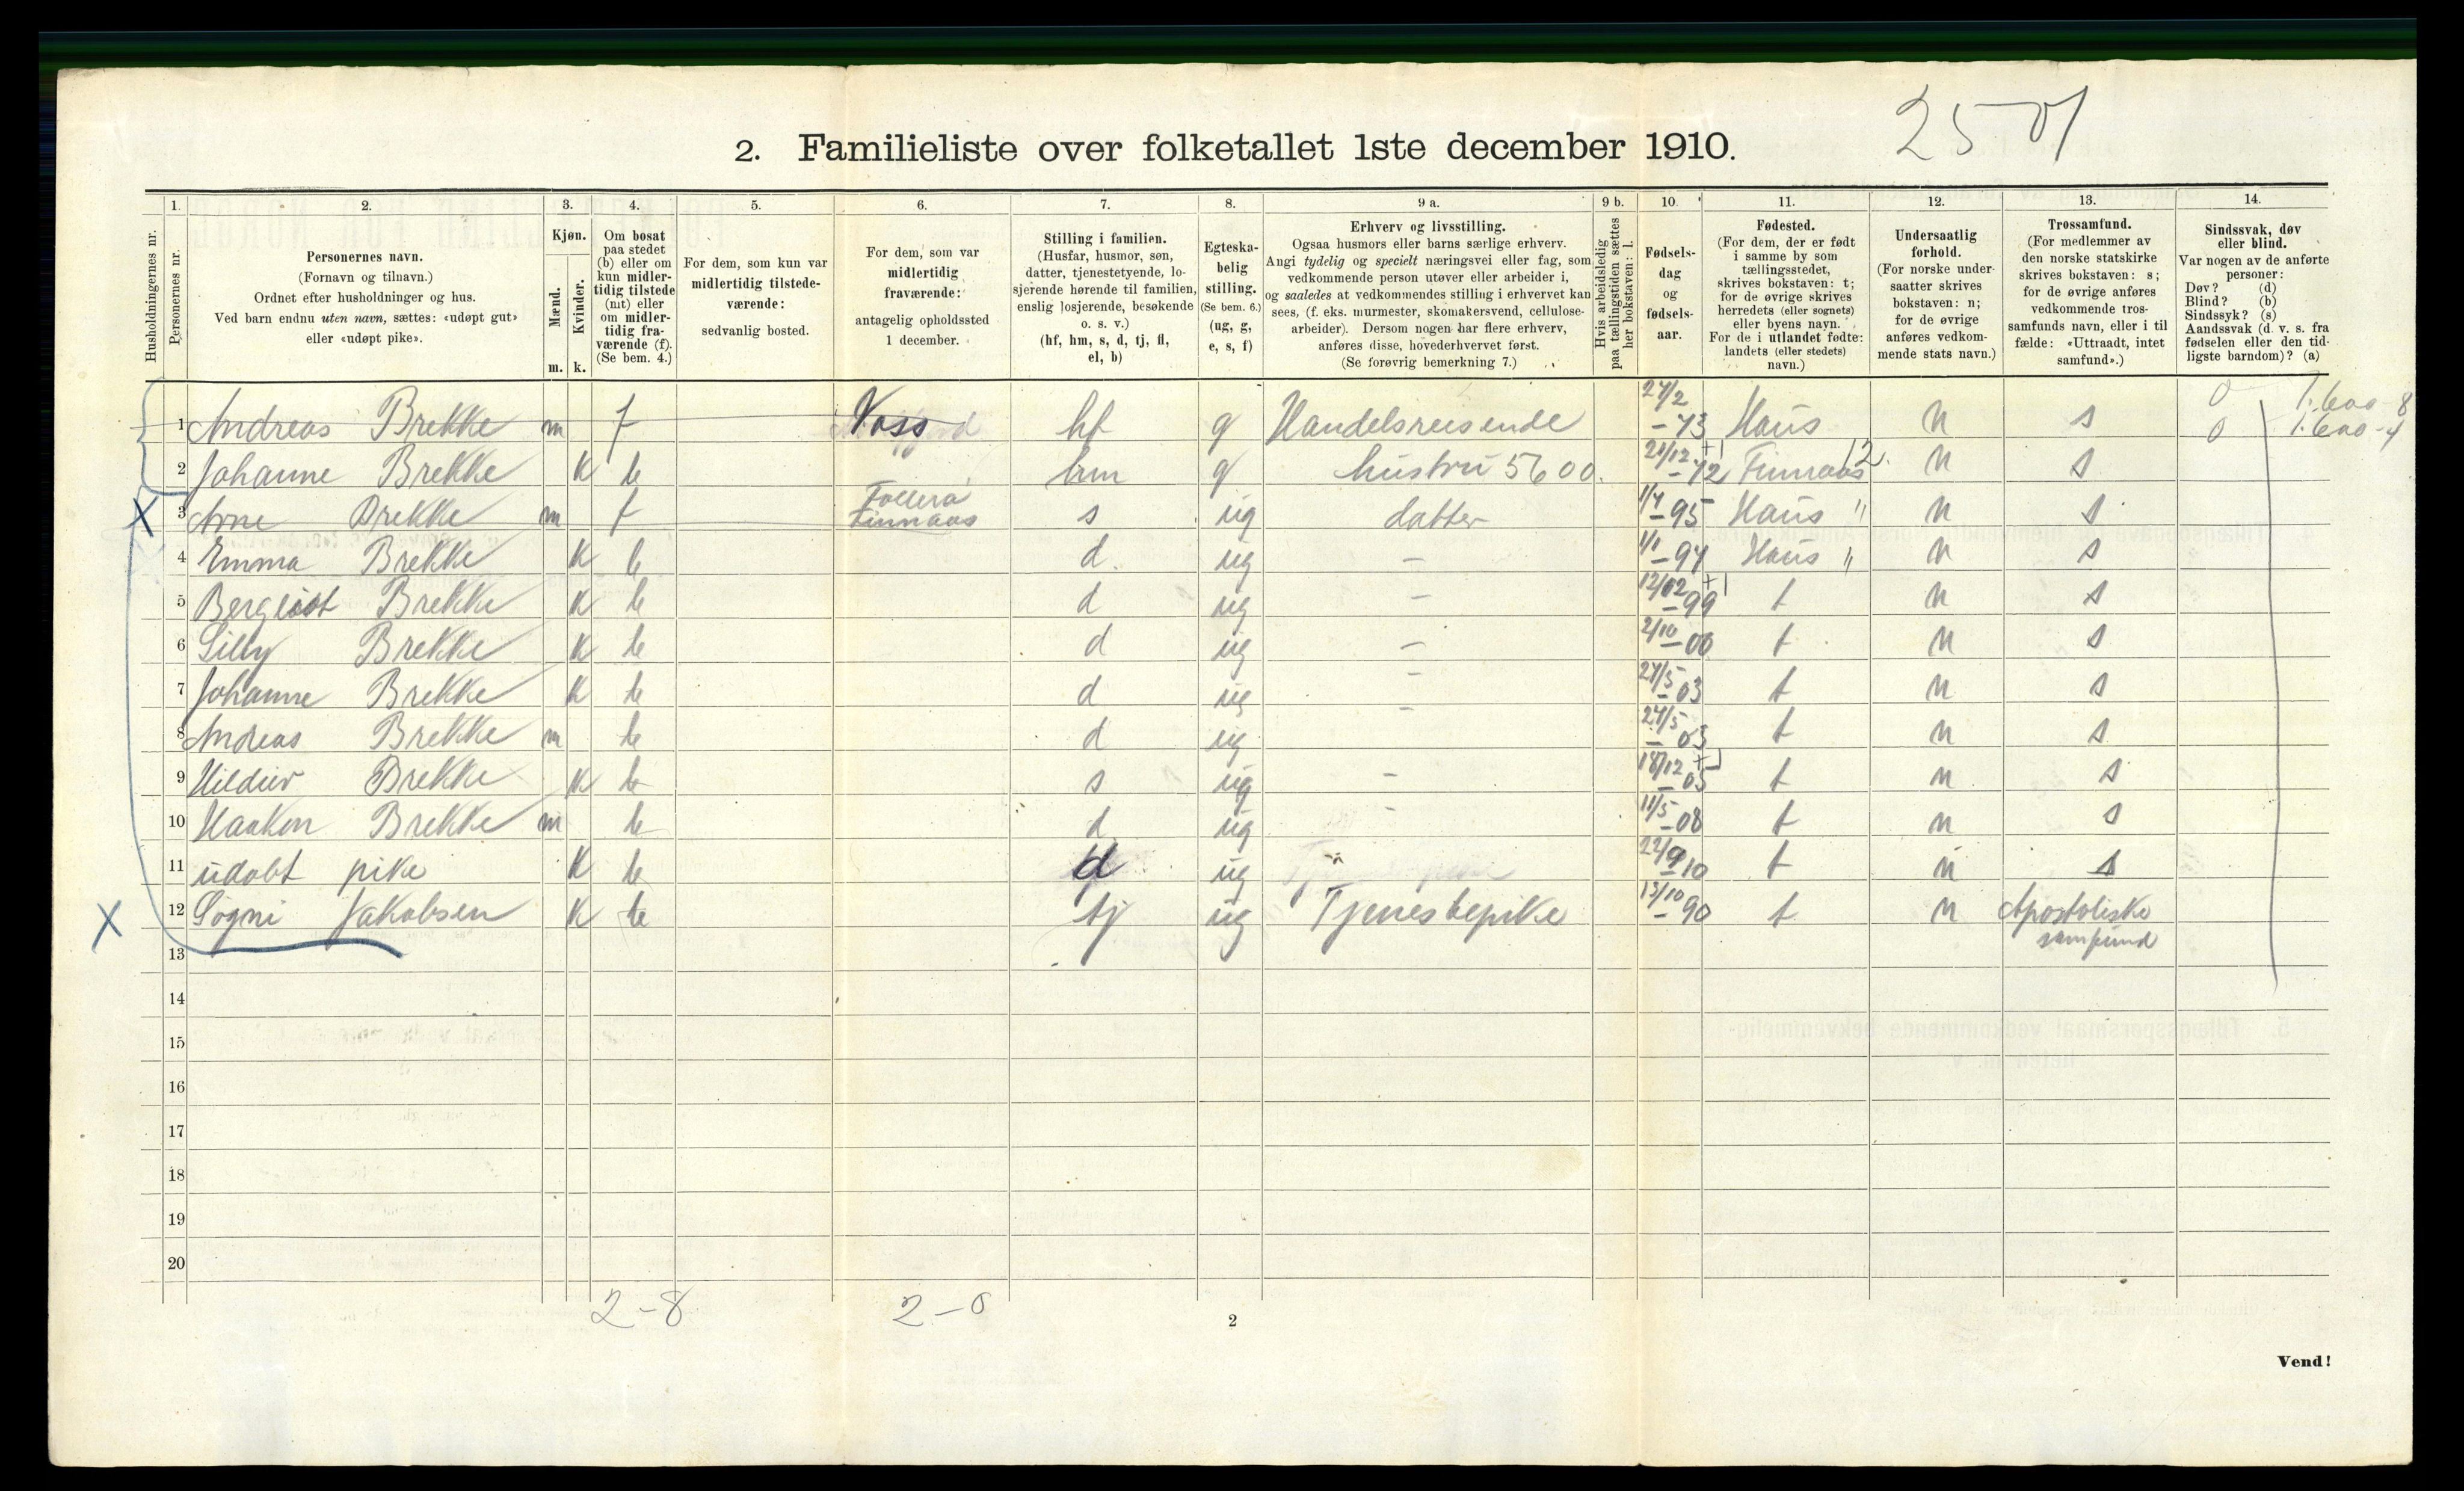 2501
2. Familieliste over folketallet 1ste december 1910.
1. 2. 3. 4. 5. 6. 7. 8. 9 a. 9 b. 10. 11. 12. 13. 14.
Husholdningernes nr.
Personernes nr.
Personernes navn.
(Fornavn og tilnavn.)
Ordnet efter husholdninger og hus.
Ved barn endnu uten navn, sættes: «udøpt gut»
eller «udøpt pike».
Kjøn.
Mænd.
m.
Kvinder.
k.
Om bosat
paa stedet
(b) eller om
kun midler-
tidig tilstede
(mt) eller
om midler-
tidig fra-
værende (f).
(Se bem. 4.)
For dem, som kun var
midlertidig tilstede-
værende:
sedvanlig bosted.
For dem, som var
midlertidig
fraværende:
antagelig opholdssted
1 december.
Stilling i familien.
(Husfar, husmor, søn,
datter, tjenestetyende, lo-
sjerende hørende til familien,
enslig losjerende, besøkende
o. s. v.)
(hf, hm, s, d, tj, fl,
el, b)
Egteska-
belig
stilling.
(Se bem. 6.)
(ug, g,
e, s, f)
Erhverv og livsstilling.
Ogsaa husmors eller barns særlige erhverv.
Angi tydelig og specielt næringsvei eller fag, som
vedkommende person utøver eller arbeider i,
og saaledes at vedkommendes stilling i erhvervet kan
sees, (f. eks. murmester, skomakersvend, cellulose-
arbeider). Dersom nogen har flere erhverv,
anføres disse, hovederhvervet først.
(Se forøvrig bemerkning 7.)
Hvis arbeidsledig
paa tællingstiden sættes
her bokstaven: l.
Fødsels-
dag
og
fødsels-
aar.
Fødested.
(For dem, der er født
i samme by som
tællingsstedet,
skrives bokstaven: t;
for de øvrige skrives
herredets (eller sognets)
eller byens navn.
For de i utlandet fødte:
landets (eller stedets)
navn.)
Undersaatlig
forhold.
(For norske under-
saatter skrives
bokstaven: n;
for de øvrige
anføres vedkom-
mende stats navn.)
Trossamfund.
(For medlemmer av
den norske statskirke
skrives bokstaven: s;
for de øvrige anføres
vedkommende tros-
samfunds navn, eller i til
fælde: «Uttraadt, intet
samfund».)
Sindssvak, døv
eller blind.
Var nogen av de anførte
personer:
Døv? (d)
Blind? (b)
Sindssyk? (s)
Aandssvak (d. v. s. fra
fødselen eller den tid-
ligste barndom)? (a)
1 Andreas Brekke m f Voss hf g Handelsreisende 27/2 - 73 Haus n s 0
2 Johanne Brekke k b hm g hustru 5600. 21/12 - 72 Finnaas 12. n s 0
3 Arne Brekke m f Finnaas s ug datter 1/4 - 95 Haus " n s
4 Emma Brekke k b d. ug - 1/1 - 94 Haus " n s
5 Bergliot Brekke k b d ug - 12/02 - 99 t n s
6 Lilly Brekke k b d ug - 2/10 - 00 t n s
7 Johanne Brekke k b d ug - 27/5 - 03 t n s
8 Andreas Brekke m b d ug - 27/5 - 03 t n s
9 Hildur Brekke k b s ug - 18/12 - 05 t n s
10 Haakon Brekke m b d ug - 11/5 - 08 t n s
11 udøbt pike k b d ug " 22/9 10 t n s
12 Sogni Jakobsen k b tj ug Tjenestepike 13/10 - 90 t n Apostoliske
samfund
13
14
15
16
17
18
19
20
2-8 2-0
2
Vend!